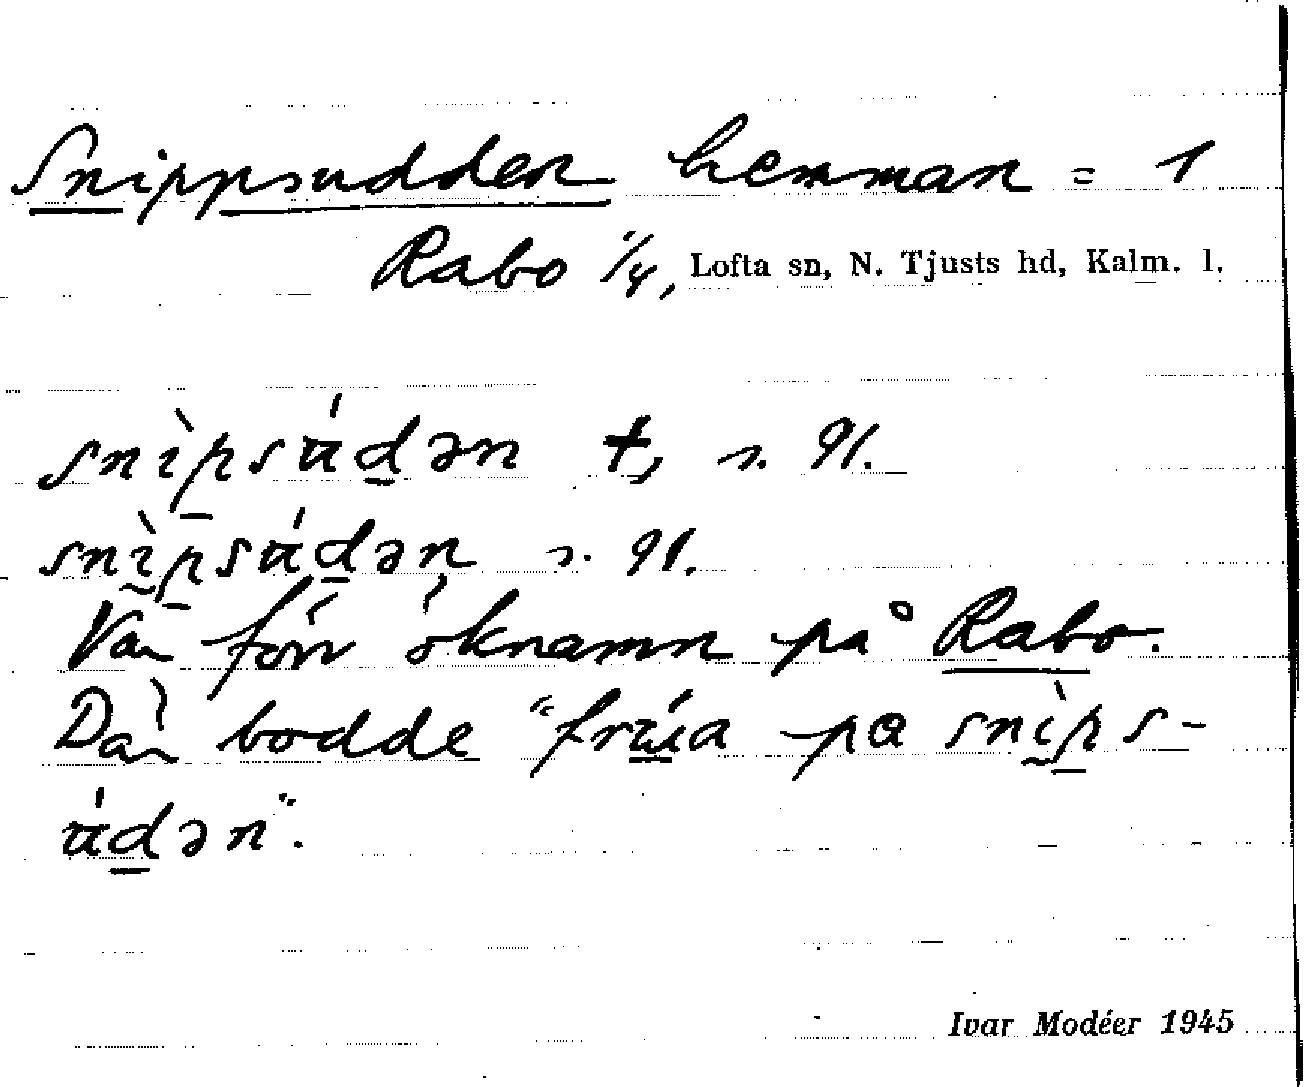 Snippsudden hemman = 1
Rabo 1/4, Lofta sn, N. Tjusts hd, Kalm. l.
snìpsúdən †, s. 91.
snìpsúdən s. 91.
Var förr öknamn på Rabo.
Där bodde "frúa pa snìps-
údən".
Ivar Modéer 1945